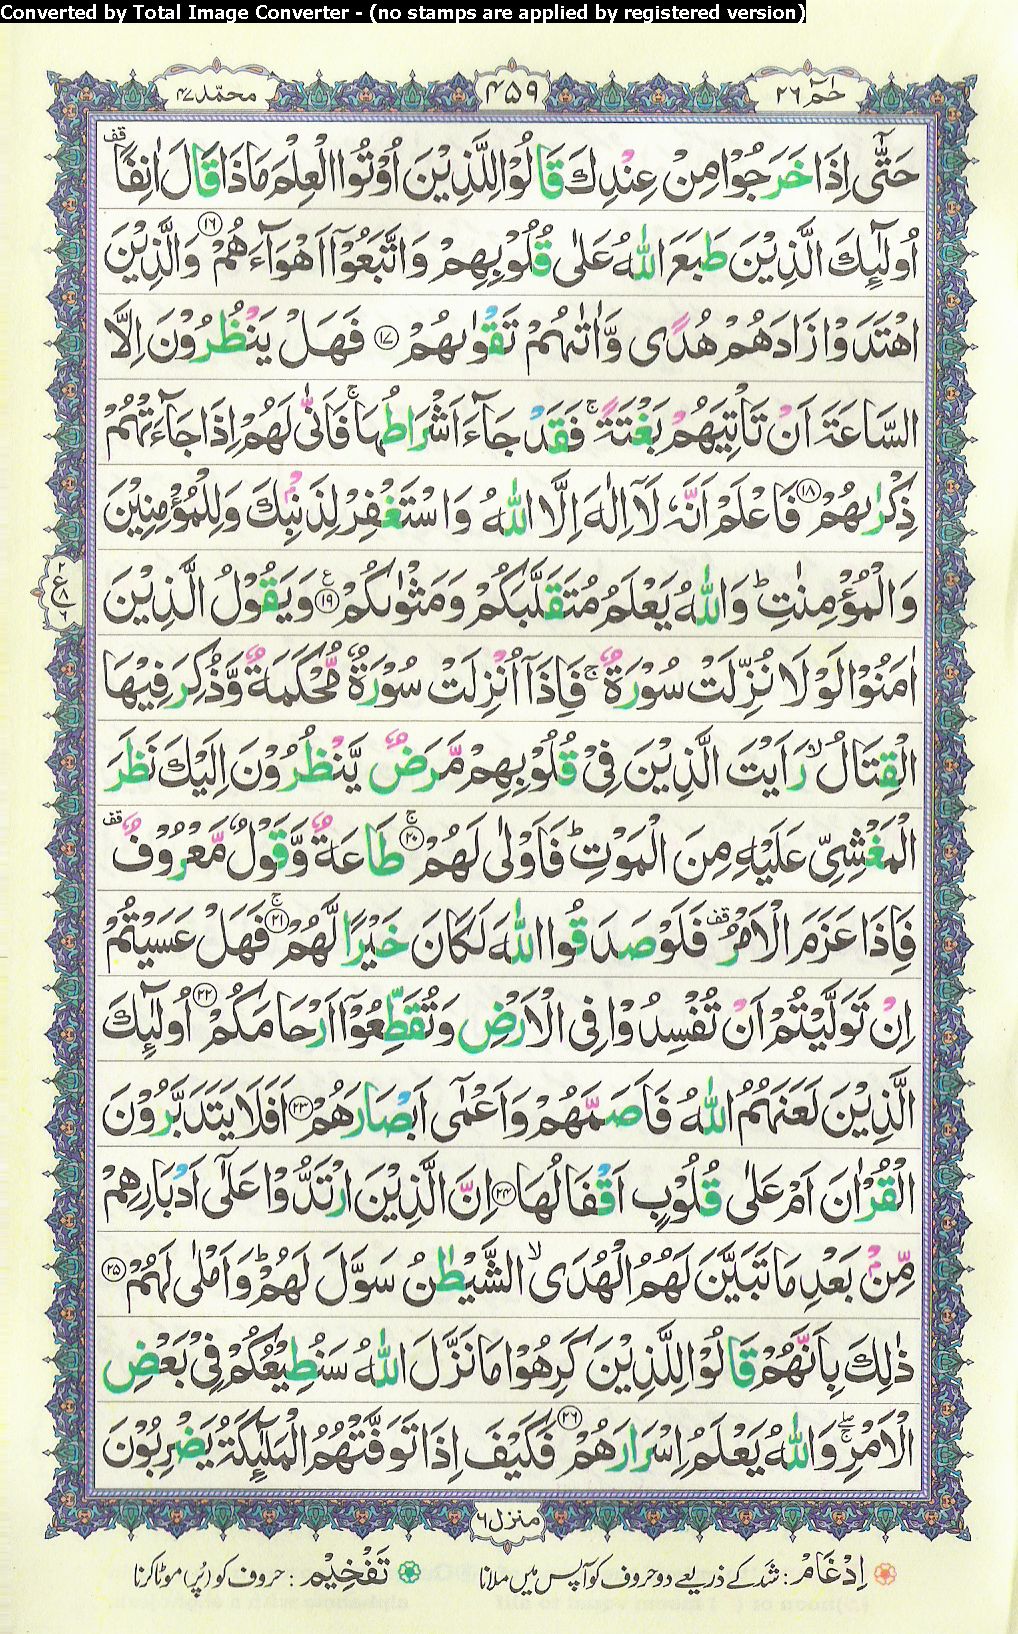 Converted by Total Image Converter - (no stamps are applied by registered version)
حٰمٓ ٢٦
۴۵۹
محمّد ۴۷
حَتّٰۤى اِذَا خَرَجُوْا مِنْ عِنْدِكَ قَالُوْا لِلَّذِيْنَ اُوْتُوا الْعِلْمَ مَاذَا قَالَ اٰنِفًا قف
اُولٰٓئِكَ الَّذِيْنَ طَبَعَ اللّٰهُ عَلٰى قُلُوْبِهِمْ وَاتَّبَعُوْۤا اَهْوَآءَهُمْ ﴿۱۶﴾ وَالَّذِيْنَ
اهْتَدَوْا زَادَهُمْ هُدًى وَّاٰتٰىهُمْ تَقْوٰىهُمْ ﴿۱۷﴾ فَهَلْ يَنْظُرُوْنَ اِلَّا
السَّاعَةَ اَنْ تَاْتِيَهُمْ بَغْتَةً ۚ فَقَدْ جَآءَ اَشْرَاطُهَا ۚ فَاَنّٰى لَهُمْ اِذَا جَآءَتْهُمْ
ذِكْرٰىهُمْ ﴿۱۸﴾ فَاعْلَمْ اَنَّهٗ لَاۤ اِلٰهَ اِلَّا اللّٰهُ وَاسْتَغْفِرْ لِذَنْۢبِكَ وَلِلْمُؤْمِنِيْنَ
وَالْمُؤْمِنٰتِ ؕ وَاللّٰهُ يَعْلَمُ مُتَقَلَّبَكُمْ وَمَثْوٰىكُمْ ﴿۱۹﴾ ع وَيَقُوْلُ الَّذِيْنَ
۲ ع ۸ ۶
اٰمَنُوْا لَوْلَا نُزِّلَتْ سُوْرَةٌ ۚ فَاِذَاۤ اُنْزِلَتْ سُوْرَةٌ مُّحْكَمَةٌ وَّذُكِرَ فِيْهَا
الْقِتَالُ ۙ رَاَيْتَ الَّذِيْنَ فِيْ قُلُوْبِهِمْ مَّرَضٌ يَّنْظُرُوْنَ اِلَيْكَ نَظَرَ
الْمَغْشِيِّ عَلَيْهِ مِنَ الْمَوْتِ ؕ فَاَوْلٰى لَهُمْ ﴿۲۰﴾ ۚ طَاعَةٌ وَّقَوْلٌ مَّعْرُوْفٌ قف
فَاِذَا عَزَمَ الْاَمْرُ قف فَلَوْ صَدَقُوا اللّٰهَ لَكَانَ خَيْرًا لَّهُمْ ﴿۲۱﴾ ۚ فَهَلْ عَسَيْتُمْ
اِنْ تَوَلَّيْتُمْ اَنْ تُفْسِدُوْا فِى الْاَرْضِ وَتُقَطِّعُوْۤا اَرْحَامَكُمْ ﴿۲۲﴾ اُولٰٓئِكَ
الَّذِيْنَ لَعَنَهُمُ اللّٰهُ فَاَصَمَّهُمْ وَاَعْمٰۤى اَبْصَارَهُمْ ﴿۲۳﴾ اَفَلَا يَتَدَبَّرُوْنَ
الْقُرْاٰنَ اَمْ عَلٰى قُلُوْبٍ اَقْفَالُهَا ﴿۲۴﴾ اِنَّ الَّذِيْنَ ارْتَدُّوْا عَلٰۤى اَدْبَارِهِمْ
مِّنْۢ بَعْدِ مَا تَبَيَّنَ لَهُمُ الْهُدَى ۙ الشَّيْطٰنُ سَوَّلَ لَهُمْ ؕ وَاَمْلٰى لَهُمْ ﴿۲۵﴾
ذٰلِكَ بِاَنَّهُمْ قَالُوْا لِلَّذِيْنَ كَرِهُوْا مَا نَزَّلَ اللّٰهُ سَنُطِيْعُكُمْ فِيْ بَعْضِ
الْاَمْرِ ۚۖ وَاللّٰهُ يَعْلَمُ اِسْرَارَهُمْ ﴿۲۶﴾ فَكَيْفَ اِذَا تَوَفَّتْهُمُ الْمَلٰٓئِكَةُ يَضْرِبُوْنَ
منزل ۶
اِدْغَامْ: شد کے ذریعے دو حروف کو آپس میں ملانا تَفْخِيْمْ: حروف کو (پُر) موٹا کرنا